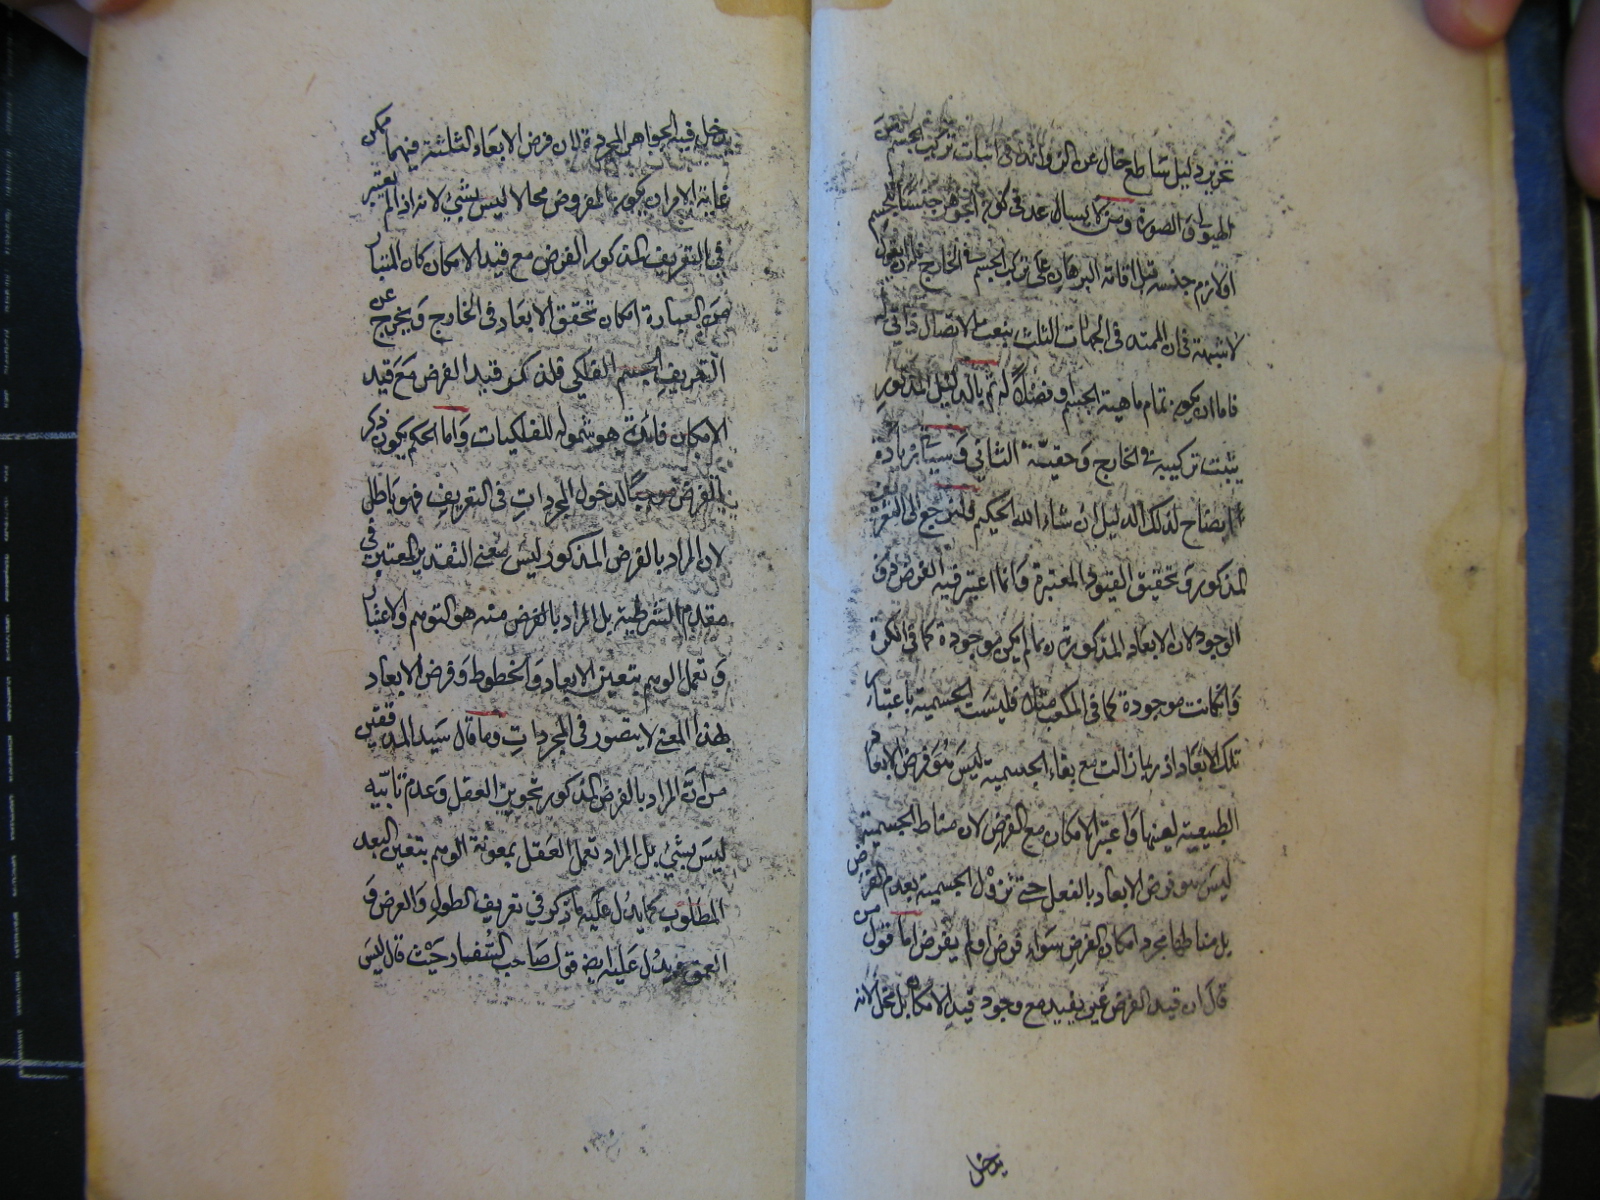 غريز دليل ساطع خال عن الزوائد في اثبات تركيب الجسم من
الهيولى والصورة ومن لا يسال عنه في كون الجوهر جنسا للجسم
او لازم جنسه قبل اقامة البرهان على تركب الجسم في الخارج فله ان يقول
لا شبهة في ان الممتد في الجهات الثلث بنعت الاتصال ذاتي له
فاما ان يكون تمام ماهية الجسم او فصلا له ثم بالدليل المذكور
يثبت تركيبه في الخارج وحقيقة الثاني وسياتي زيادة
ايضاح لذلك الدليل ان شاء الله الحكيم فلنرجع الى التعريف
المذكور وتحقيق القيود المعتبرة وانما اعتبر فيه الفرض دون
الوجود لان الابعاد المذكورة ربما لم يكن موجودة كما في الكرة
وان كانت موجودة كما في المكعب مثلا فليست الجسمية باعتبار
تلك الابعاد اذ ربما زالت مع بقاء الجسمية ليس هو فرض الابعاد
الطبيعية لعينها واعتبر الامكان مع الفرض لان مناط الجسمية
ليس هو فرض الابعاد بالفعل حتى تزول الجسمية بعدم الفرض
بل مناطها مجرد امكان الفرض سواء فرض او لم يفرض اما قول من
قال ان قيد الفرض غير مفيد مع وجود قيد الامكان بل مخل لانه
يدخل
يدخل فيه الجواهر المجردة لان فرض الابعاد الثلثة فيهما ممكن
غاية الامر ان يكون المفروض محالا ليس بشئ لانه اذا لم يعتبر
في التعريف المذكور الفرض مع قيد الامكان كان المتبادر
من العبارة امكان تحقق الابعاد في الخارج ويخرج عن
التعريف الجسم الفلكي فلذكر قيد الفرض مع قيد
الامكان فائدة هو شموله للفلكيات واما الحكم بكون ذكر
الفرض موجبا لدخول المجردات في التعريف فهو باطل
لان المراد بالفرض المذكور ليس معنى التقدير المعتبر في
مقدم الشرطية بل المراد بالفرض منه هو التوهم والاعتبار
وتعمل الوهم بتعين الابعاد والخطوط وفرض الابعاد
بهذا المعنى لا يتصور في المجردات وما قال سيد المدققين
من ان المراد بالفرض المذكور تجويز العقل وعدم تابيه
ليس بشئ بل المراد تعمل العقل بمعونة الوهم بتعين البعد
المطلوب كما يدل عليه ما ذكر في تعريف الطول والعرض و
العمق ويدل عليه ايضا قول صاحب الشفاء حيث قال ليس